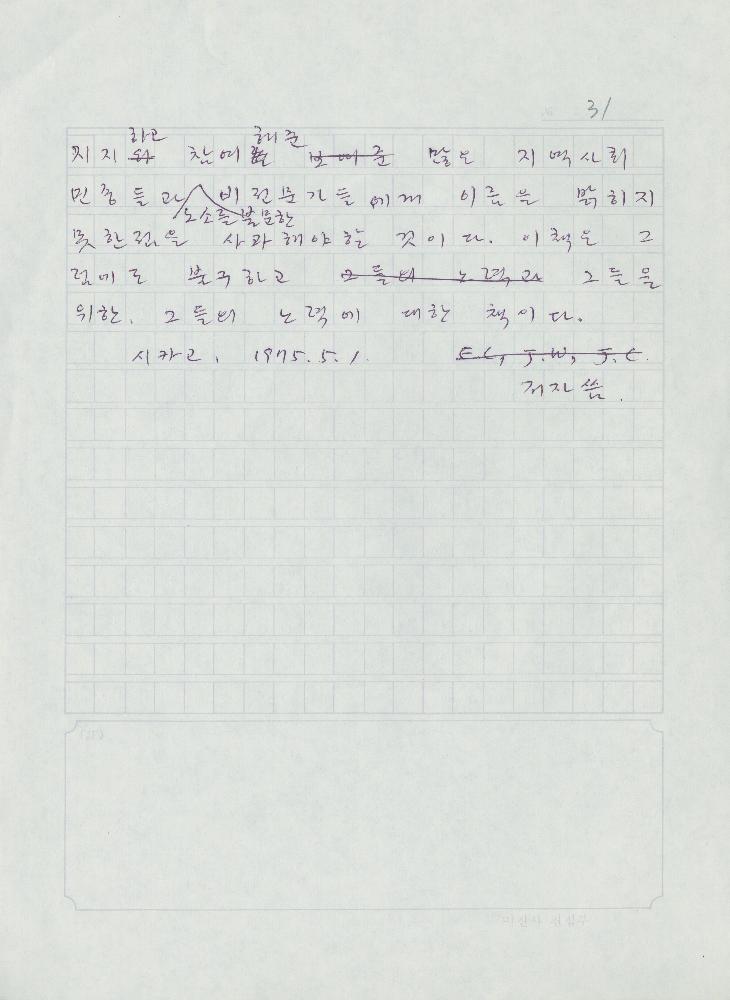 31
하고 해준
지지와 참여를 보여준 많은 지역사회
민중들과 비전문가들에게 이름을 밝히지
노소를 불문한
못한점을 사과해야할 것이다. 이책은 그
럼에도 불구하고 그들의 노력과 그들을
위한, 그들의 노력에 대한 책이다.
시카고, 1975. 5. 1.
E.C, J.W, J.C.
저자 씀.